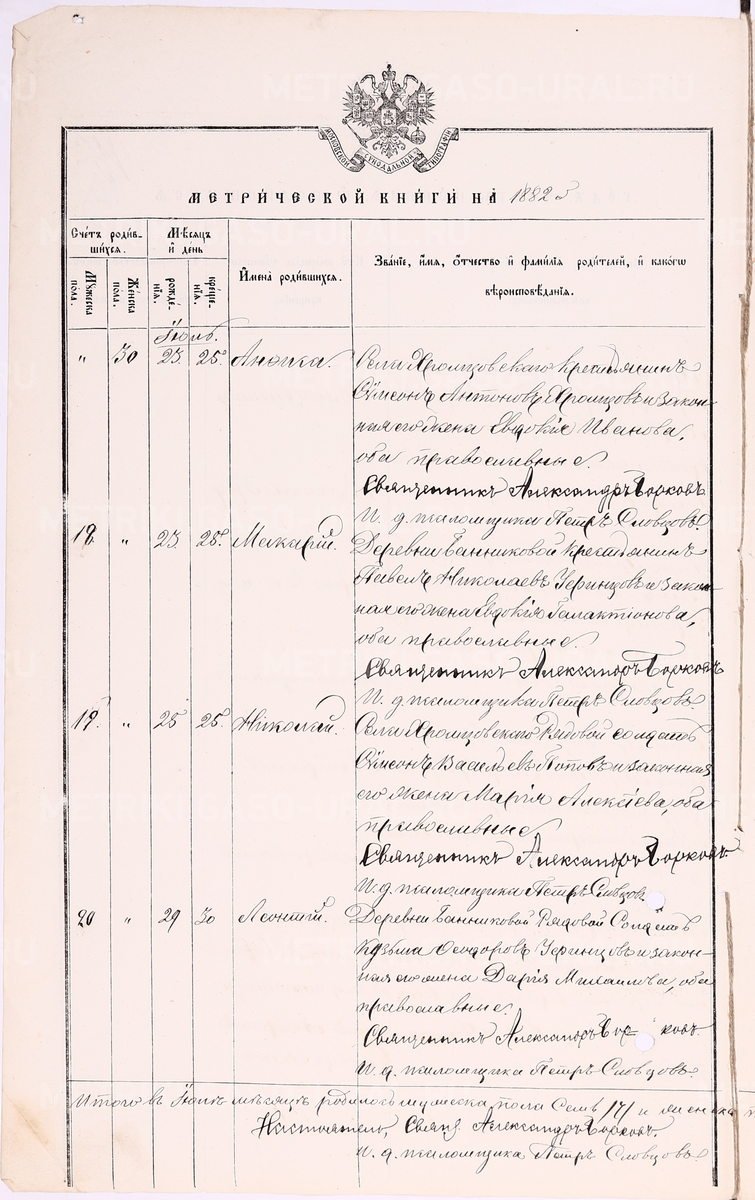 МОСКОВСКОЙ СУНОДАЛЬНОЙ ТИПОГРАФІИ
МЕТРИ́ЧЕСКОЙ КНИ́ГИ НА 1882
Сче́тъ роди́вшихся.
Мꙋ́жеска по́ла.
Же́нска по́ла.
Мѣ́сяцъ и҆ де́нь
рожде́нїѧ.
креще́нїѧ.
И҆мена̀ роди́вшихся.
Зва́нїе, и҆́мѧ, ѻ҆́тчество и҆ фамилїѧ роди́телей, и҆ како́гѡ
вѣроисповѣ́данїѧ.
Іюль.
„ 30 23 25. Анѳиса. Села Храмцовскаго крестьянинъ
Сѵмеонъ Антоновъ Храмцовъ и закон-
ная его жена Евдокія Иванова,
оба православные.
Священникъ Александръ Горковъ
И. д. псаломщика Петръ Словцовъ.
18. „ 23. 25. Макарій. Деревни Банниковой крестьянинъ
Павелъ Николаевъ Черинцовъ и закон-
ная его жена Евдокія Галактіонова,
оба православные.
Священникъ Александръ Горковъ
И. д. псаломщика Петръ Словцовъ.
19. „ 25 25. Николай. Села Храмцовскаго Рядовой солдатъ
Сѵмеонъ Васильевъ Поповъ и законная
его жена Марія Алексіева, оба
православные
Священникъ Александръ Горковъ.
И. д. псаломщика Петръ Словцовъ.
20 „ 29 30 Леонтій. Деревни Банниковой Рядовой Солдатъ
Кузьма Ѳеодоровъ Черинцовъ и закон-
ная его жена Дарія Михаилова, оба
православные.
Священникъ Александръ Горковъ.
И. д. псаломщика Петръ Словцовъ.
Итого въ Іюлѣ мѣсяцѣ родилось мужеска пола Семь /7/ и женска
Настоятель, Священ Александръ Горковъ.
И. д. псаломщика Петръ Словцовъ.